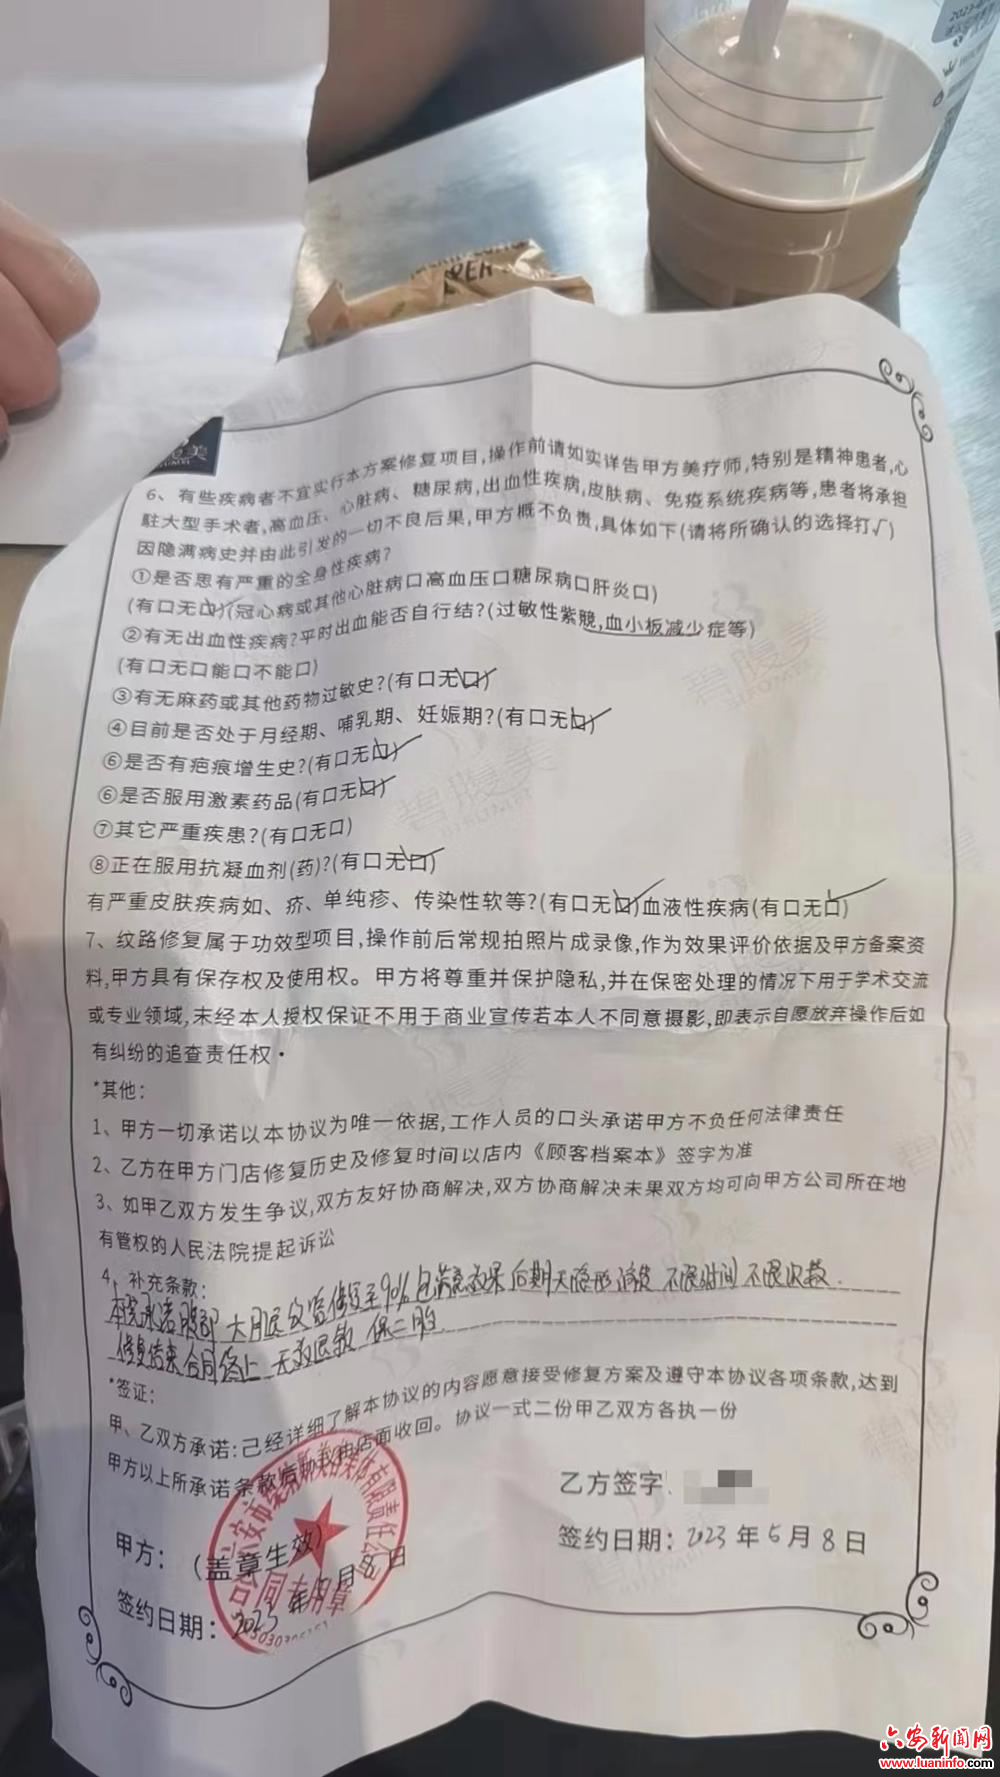 美
6、有些疾病者不宜实行本方案修复项目,操作前请如实详告甲方美疗师,特别是精神患者,心
駐大型手术者,高血压、心脏病、糖尿病,出血性疾病,皮肤病、免疫系统疾病等,患者将承担
因隐满病史并由此引发的一切不良后果,甲方概不负责,具体如下(请将所确认的选择打√)
①是否患有严重的全身性疾病?
(有口无口)(冠心病或其他心脏病口高血压口糖尿病口肝炎口)
②有无出血性疾病?平时出血能否自行结?(过敏性紫癜,血小板减少症等)
(有口无口能口不能口)
③有无麻药或其他药物过敏史?(有口无口)
④目前是否处于月经期、哺乳期、妊娠期?(有口无口)
⑥是否有疤痕增生史?(有口无口)
⑥是否服用激素药品(有口无口)
⑦其它严重疾患?(有口无口)
⑧正在服用抗凝血剂(药)?(有口无口)
有严重皮肤疾病如、疥、单纯疹、传染性软等?(有口无口)血液性疾病(有口无口)
7、纹路修复属于功效型项目,操作前后常规拍照片成录像,作为效果评价依据及甲方备案资
料,甲方具有保存权及使用权。甲方将尊重并保护隐私,并在保密处理的情况下用于学术交流
或专业领域,未经本人授权保证不用于商业宣传若本人不同意摄影,即表示自愿放弃操作后如
有纠纷的追查责任权·
*其他:
1、甲方一切承诺以本协议为唯一依据,工作人员的口头承诺甲方不负任何法律责任
2、乙方在甲方门店修复历史及修复时间以店内《顾客档案本》签字为准
3、如甲乙双方发生争议,双方友好协商解决,双方协商解决未果双方均可向甲方公司所在地
有管权的人民法院提起诉讼
4、补充条款:
本院承诺腹部 大月民纹容修复至90% 包满意效果后期无隐形消费 不限时间 不限次数.
修复结束合同终止 无效退款 保二胎
*签证:
甲、乙双方承诺:己经详细了解本协议的内容愿意接受修复方案及遵守本协议各项条款,达到
甲方以上所承诺条款后协议由店面收回。协议一式二份甲乙双方各执一份
乙方签字
甲方:(盖章生效)
签约日期:2023年5月8日
签约日期:2023年5月8日
合同专用章
碧腹美
六安新闻网
www.luaninfo.com